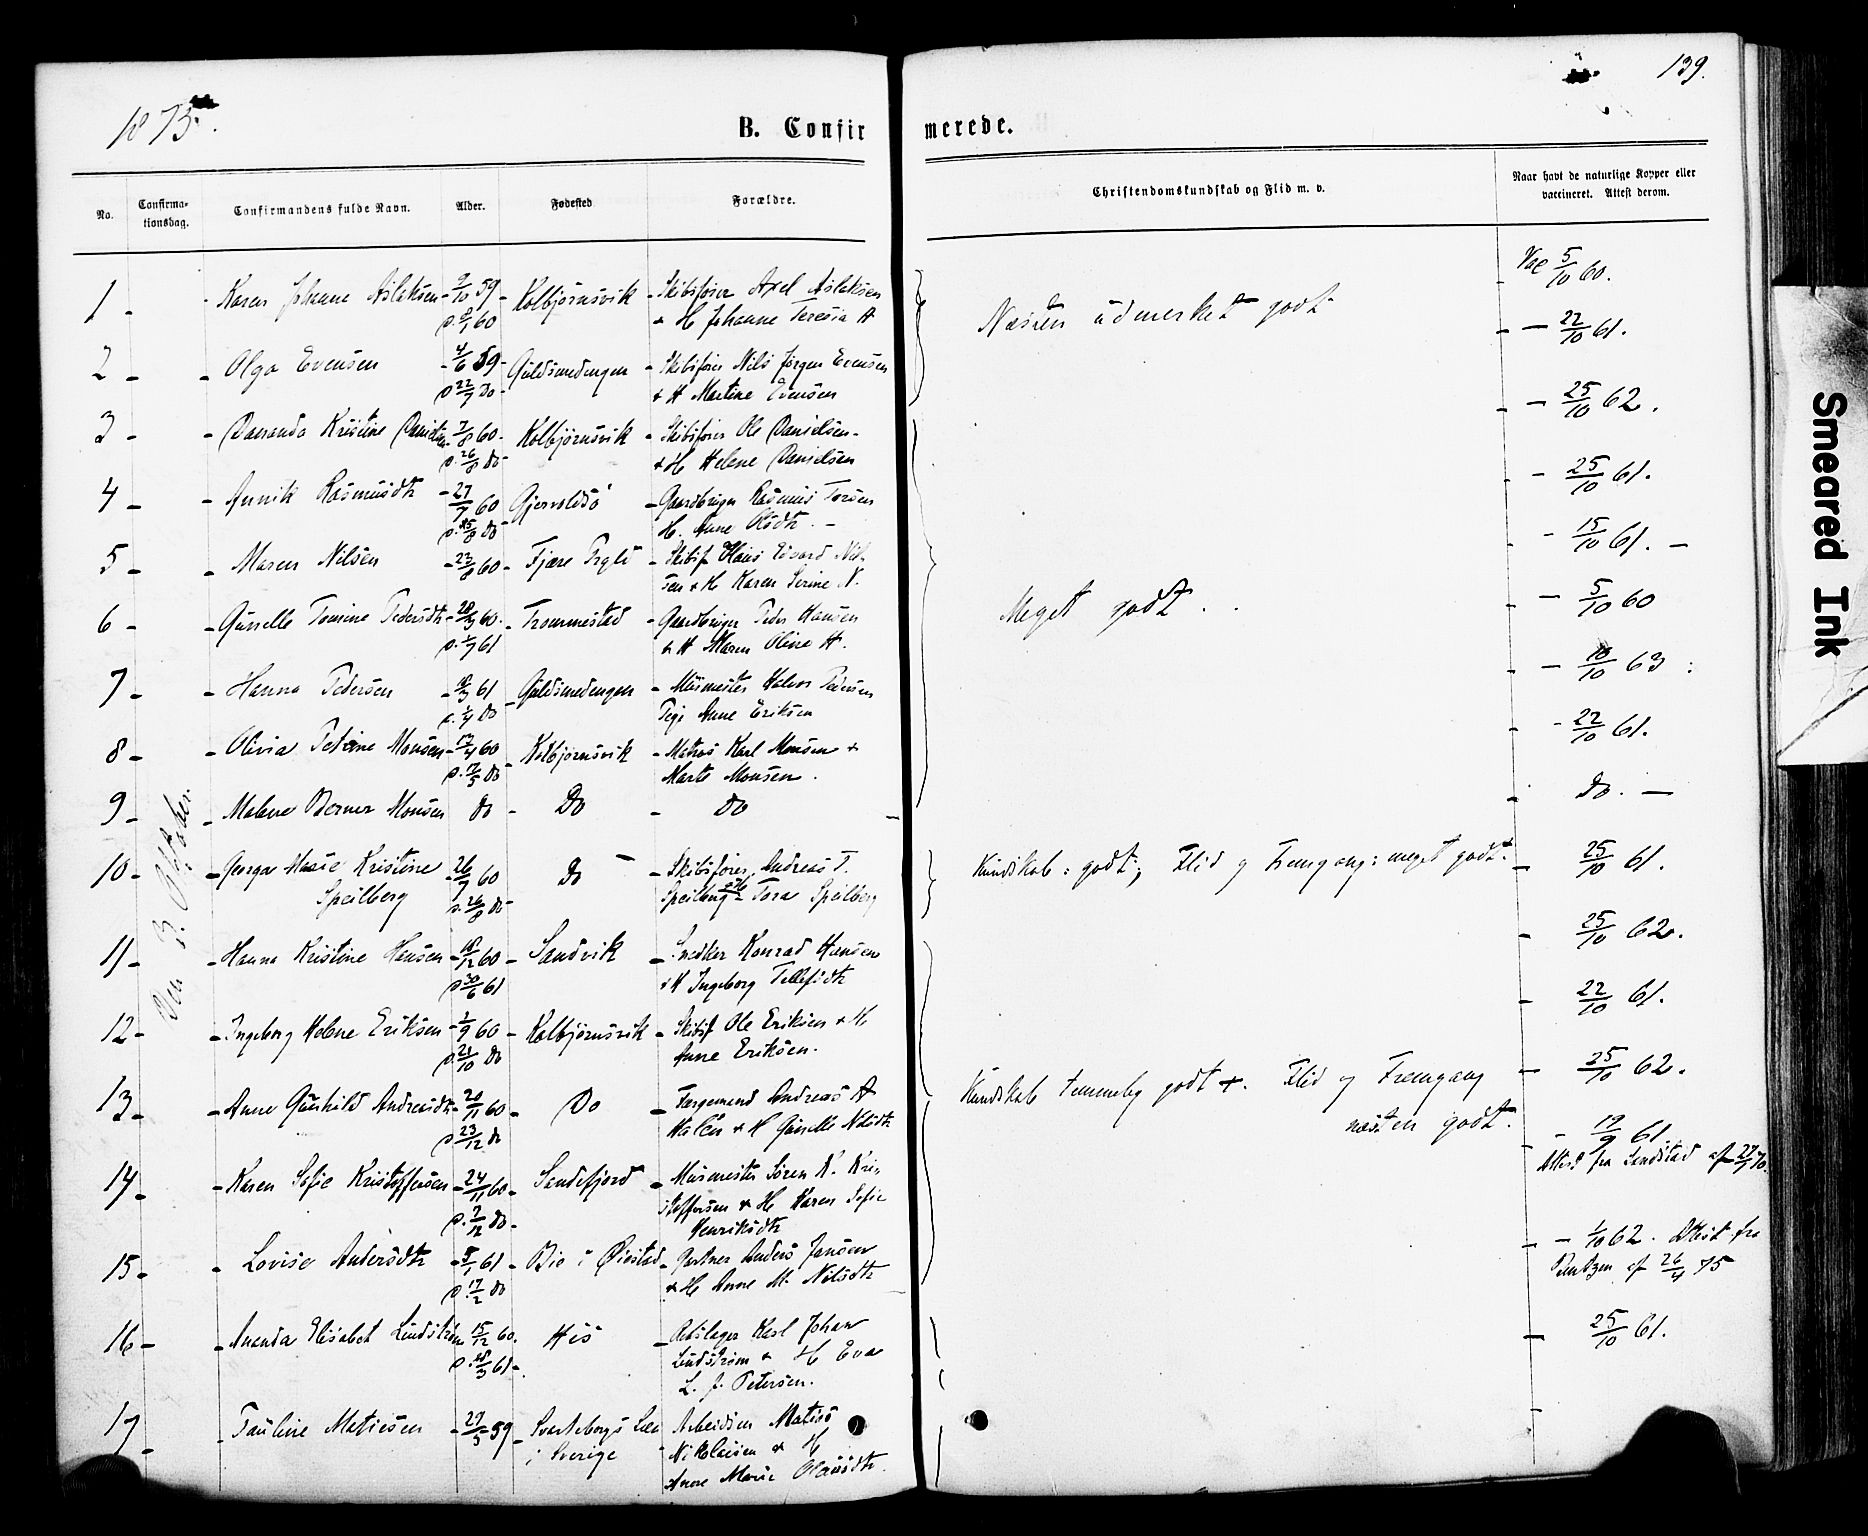 139.
1875.
B. Confirmerede.
No. Confirmationsdag. Confirmandens fulde Navn. Alder. Fødested Forældre. Christendomskundskab og Flid m. v. Naar havt de naturlige Kopper eller vaccineret. Attest derom.
Den 3. Oktober.
1 - Karen Johanne Aslaksen - 9/10 59 - Kolbjørnsvik - Skibsfører Axel Aslaksen Vac 5/10 60.
60 & H Johanne Teresia A
Næsten udmerket godt
2 - Olga Evensen - 4/6 59 - Guldsmedengen - Skibsfører Nils Jørgen Evensen - 22/10 61.
d. 22/7 Do - & H Martine Evensen
3 - Kristine 7/8 60 - Kolbjørnsvik - Skibsfører Ole Danielsen - - 25/10 62.
d. 26/8 do - & H Helene Danielsen
4 - Annik Rasmusdtr - 27/7 60 Gjervoldsø - Gaardbruger Rasmus - 25/10 61.
do H. Anne Olsdtr. -
5 - Maren Nilsen - 23/8 60 - Fjære - Skibsf Hans Edvard Nil- - 15/10 61. -
sen & H Karen Serine N.
Meget godt.
6 - Gunelle Tomine Pedersdtr - 60. - Trommestad - Gaardbruger Peder Hansen - 5/10 60
61 & H Maren Oline H.
7 - Hanna Pedersen - 61 - Guldsmedengen - Murmester Halvor Pedersen - 10/10 63
Do Pige Anne Eriksen
8 - Olivia Petrine Monsen - 17/4 60 - Kolbjørnsvik - Matros Karl Monsen & - 22/10 61.
do Marte Monsen.
9 - Malene Berner Monsen do - Do - Do do. -
10 - Georga Marie Kristine 26/7 60 do - Skibsfører Andreas T. - 25/10 61.
Speilberg d. 26/8 do - Speilberg & H Tora Speilberg
Kundskab: godt; Flid og Fremgang: meget godt.
11 - Hanna Kristine Hansen - 18/12 60 - Sandvik - Snedker Konrad Hansen - 25/10 62.
d 30/6 61 & H Ingeborg Tellefsdtr
12 - Ingeborg Helene Eriksen - 1/9 60 - Kolbjørnsvik - Skibsf Ole Eriksen & H - 22/10 61.
d. 21/10 do Anne Eriksen.
13 - Anne Gunhild Andreasdtr - 20/11 60 - Do - Færgemand Andreas A - 25/10 62.
d. 23/12 do & H Gunelle Nilsdtr
Kundskab temmelig godt +. Flid og Fremgang
næsten godt.
14 - Karen Sofie Kristoffersen - 24/11 60 - Sandefjord - Murmester Søren K. Kri- - 19/9 61
d. 7/12 do. - stoffersen & H Karen Sofie Attest fra
Henriksdtr
15 - Lovise Andersdtr - 61 - Bie i Øiestad - Gartner Anders Jensen - 1/10 62. Attest fra
d. 17/2 do & H Anne M. Nilsdtr af 26/4 75
16 - Amanda Elisabet Lindstrøm 15/12 60. His - Rebslager Karl Johan - 25/10 61.
61 - Lindstrøm & H Eva
L. J. Petersen.
17 - Pauline Matiesen - 27/5 59 - Svarteborgs Læn Arbeidsm Matias
i Sverige Nikolaisen & H
Anne Marie Olausdtr.
Smeared Ink